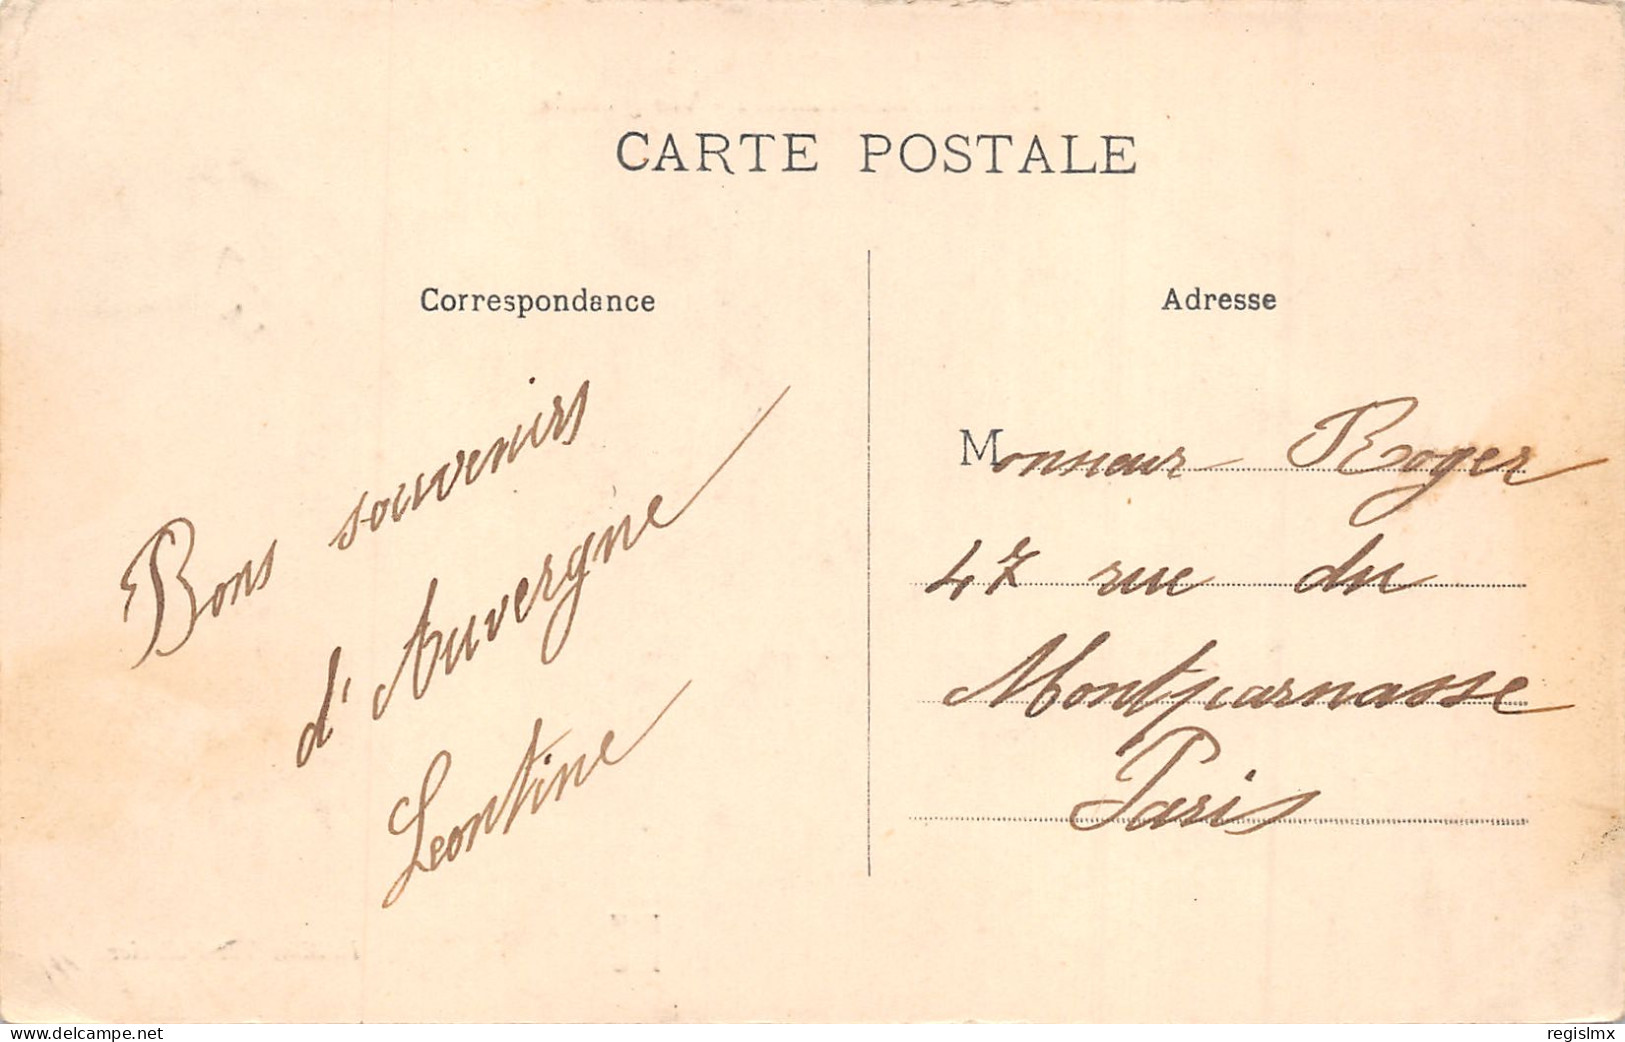 CARTE POSTALE
Correspondance
Bons souvenirs
d'Auvergne
Leontine
Adresse
Monsieur Roger
47 rue du
Montparnasse
Paris
delcampe.net
regislmx